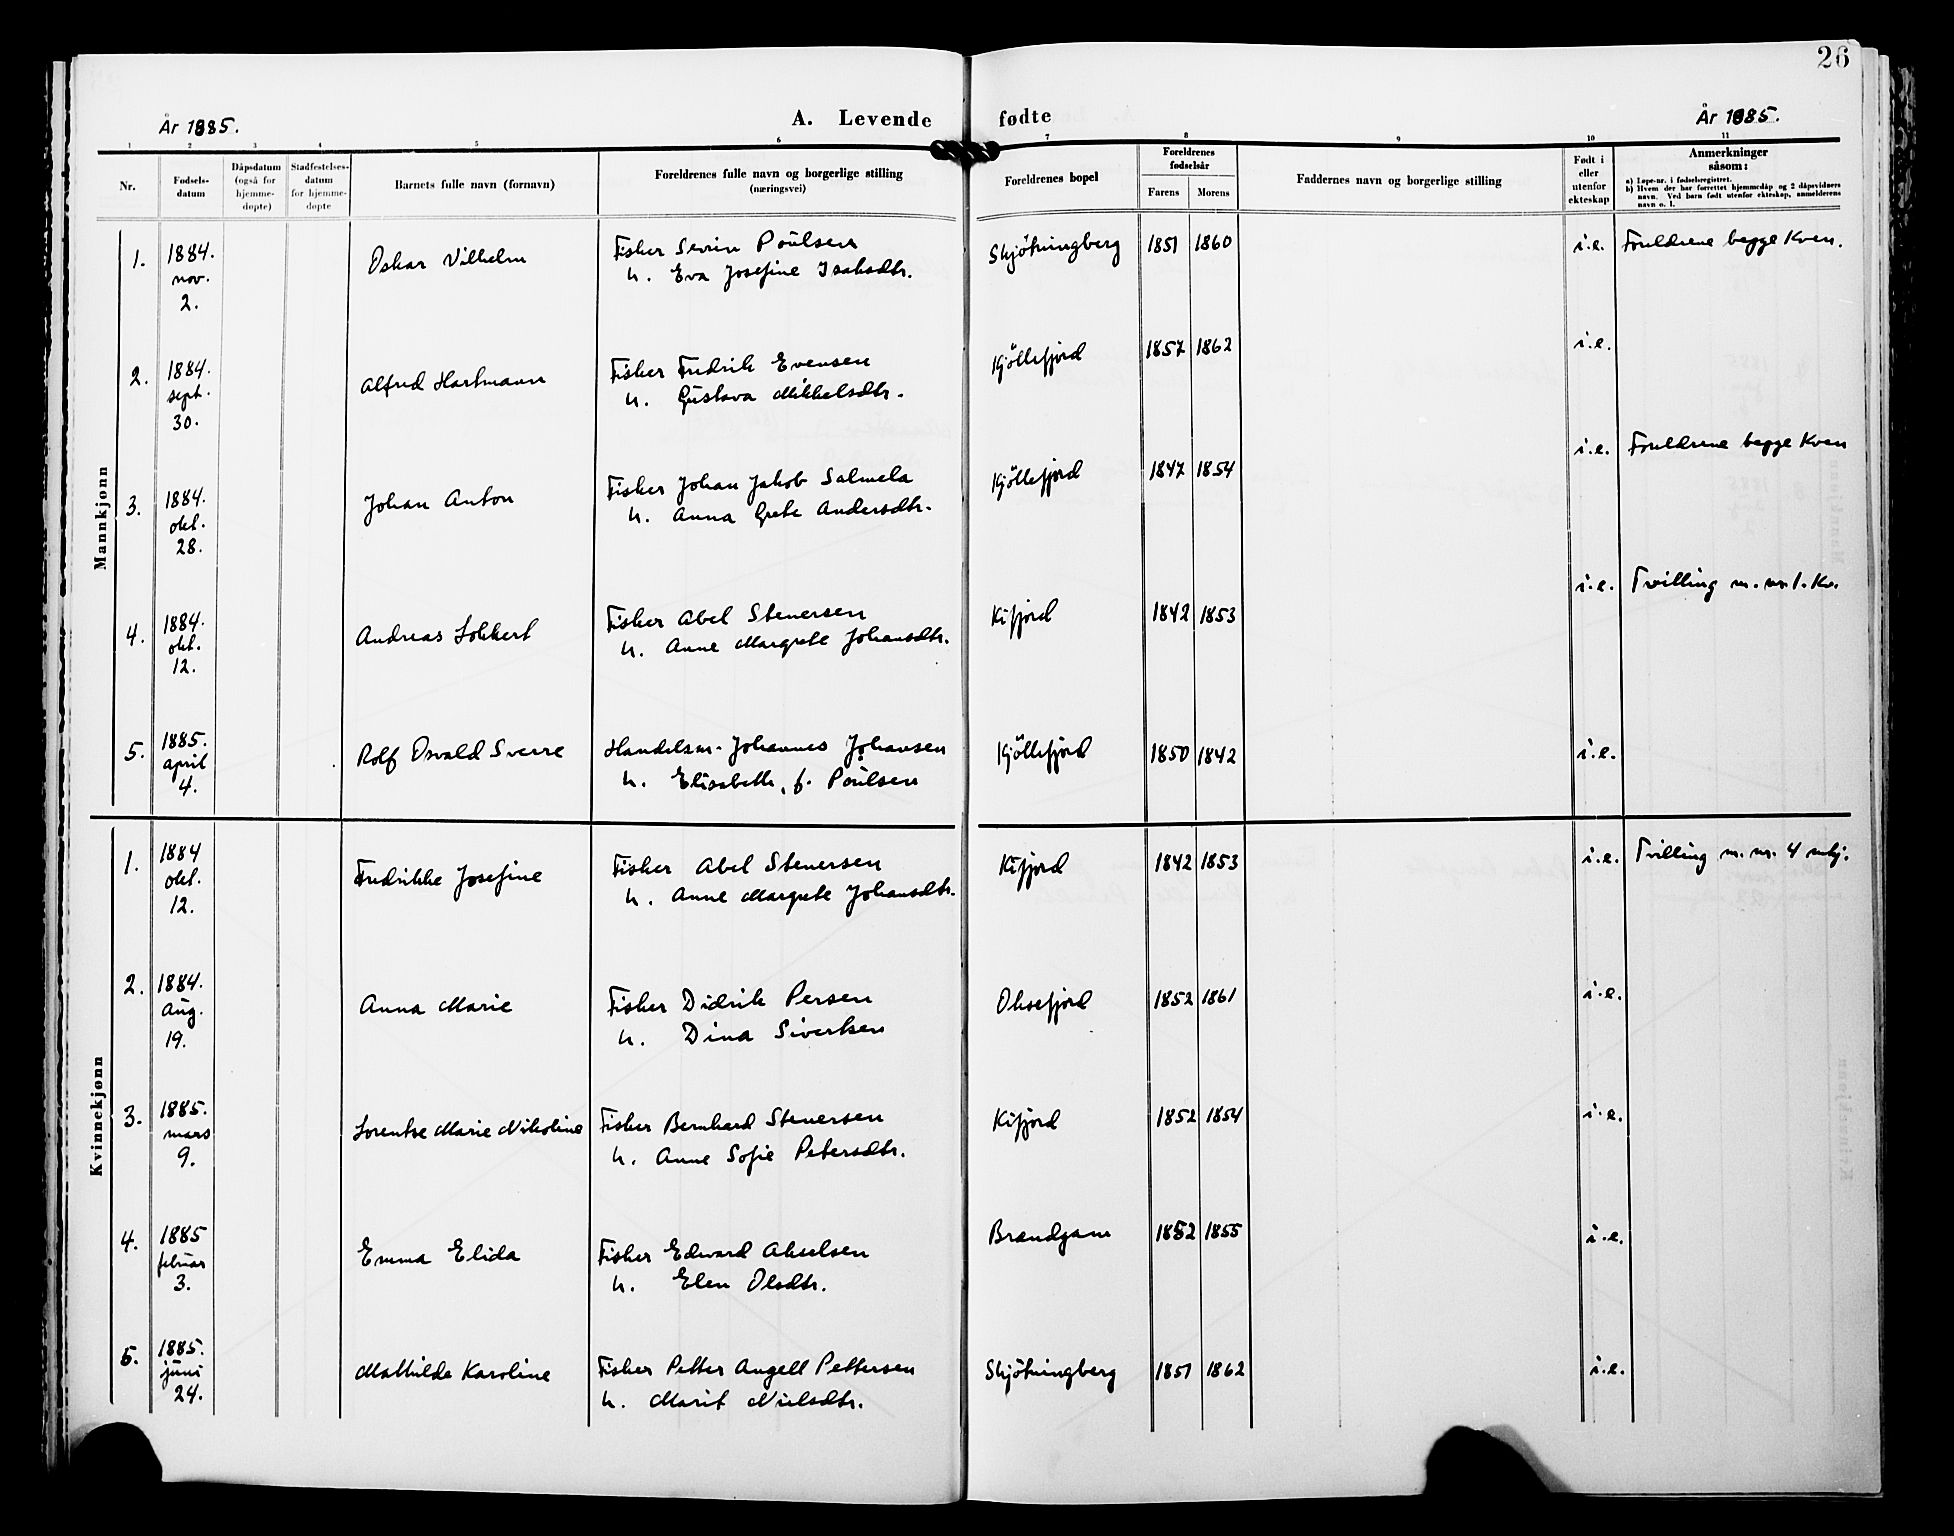 26
År 1885.
A. Levende fødte
År 1885.
1 2 3 4 5 6 7 8 9 10 11
Nr.
Fødsels-
datum
Dåpsdatum
(også for
hjemme-
døpte)
Stadfestelses-
datum
for hjemme-
døpte
Barnets fulle navn (fornavn)
Foreldrenes fulle navn og borgerlige stilling
(næringsvei)
Foreldrenes bopel
Foreldrenes
fødselsår
Farens Morens
Faddernes navn og borgerlige stilling
Født i
eller
utenfor
ekteskap
Anmerkninger
såsom:
a) Løpe-nr. i fødselsregistret.
b) Hvem der har forrettet hjemmedåp og 2 dåpsvidners
navn. Ved barn født utenfor ekteskap, anmelderens
navn o. l.
Mannkjønn
1. 1884. nov. 2. Oskar Vilhelm Fisker Sevrin Poulsen Skjötningberg 1851 1860 i.e. Foreldrene begge Kven.
h. Eva Josefine Isaksdtr.
2. 1884. sept. 30. Alfred Hartmann Fisker Fredrik Evensen Kjöllefjord 1857 1862 i.e.
h. Gustava Mikkelsdtr.
3. 1884. okt. 28. Johan Anton Fisker Johan Jakob Salmela Kjöllefjord 1847 1854 i.e. Foreldrene begge Kven
h. Anna Grete Andersdtr.
4. 1884. okt. 12. Andreas Lokkert Fisker Abel Stenersen Kifjord 1842 1853 i.e. Tvilling m. nr 1. Kv.
h. Anne Margrete Johansdtr.
5. 1885. april 4. Rolf Osvald Sverre Handelsm. Johannes Johansen Kjöllefjord 1850 1842 i.e.
h. Elisabeth, f. Poulsen
Kvinnekjønn
1. 1884 okt. 12. Fredrikke Josefine Fisker Abel Stenersen Kifjord 1842 1853 i.e. Tvilling m. nr. 4 mkj.
h. Anne Margrete Johansdtr.
2. 1884. Aug. 19. Anna Marie Fisker Didrik Persen Oksefjord 1852 1861 i.e.
h. Dina Sivertsen
3. 1885. mars 9. Lorentse Marie Nikoline Fisker Bernhard Stenersen Kifjord 1852 1854 i.e.
h. Anne Sofie Petersdtr.
4. 1885 februar 3. Emma Elida Fisker Edward Akselsen 1852 1855 i.e.
h. Elen Olsdtr.
5. 1885. juni 24. Mathilde Karoline Fisker Petter Angell Pettersen Skjötningberg 1851 1862 i.e.
h. Marit Nielsdtr.